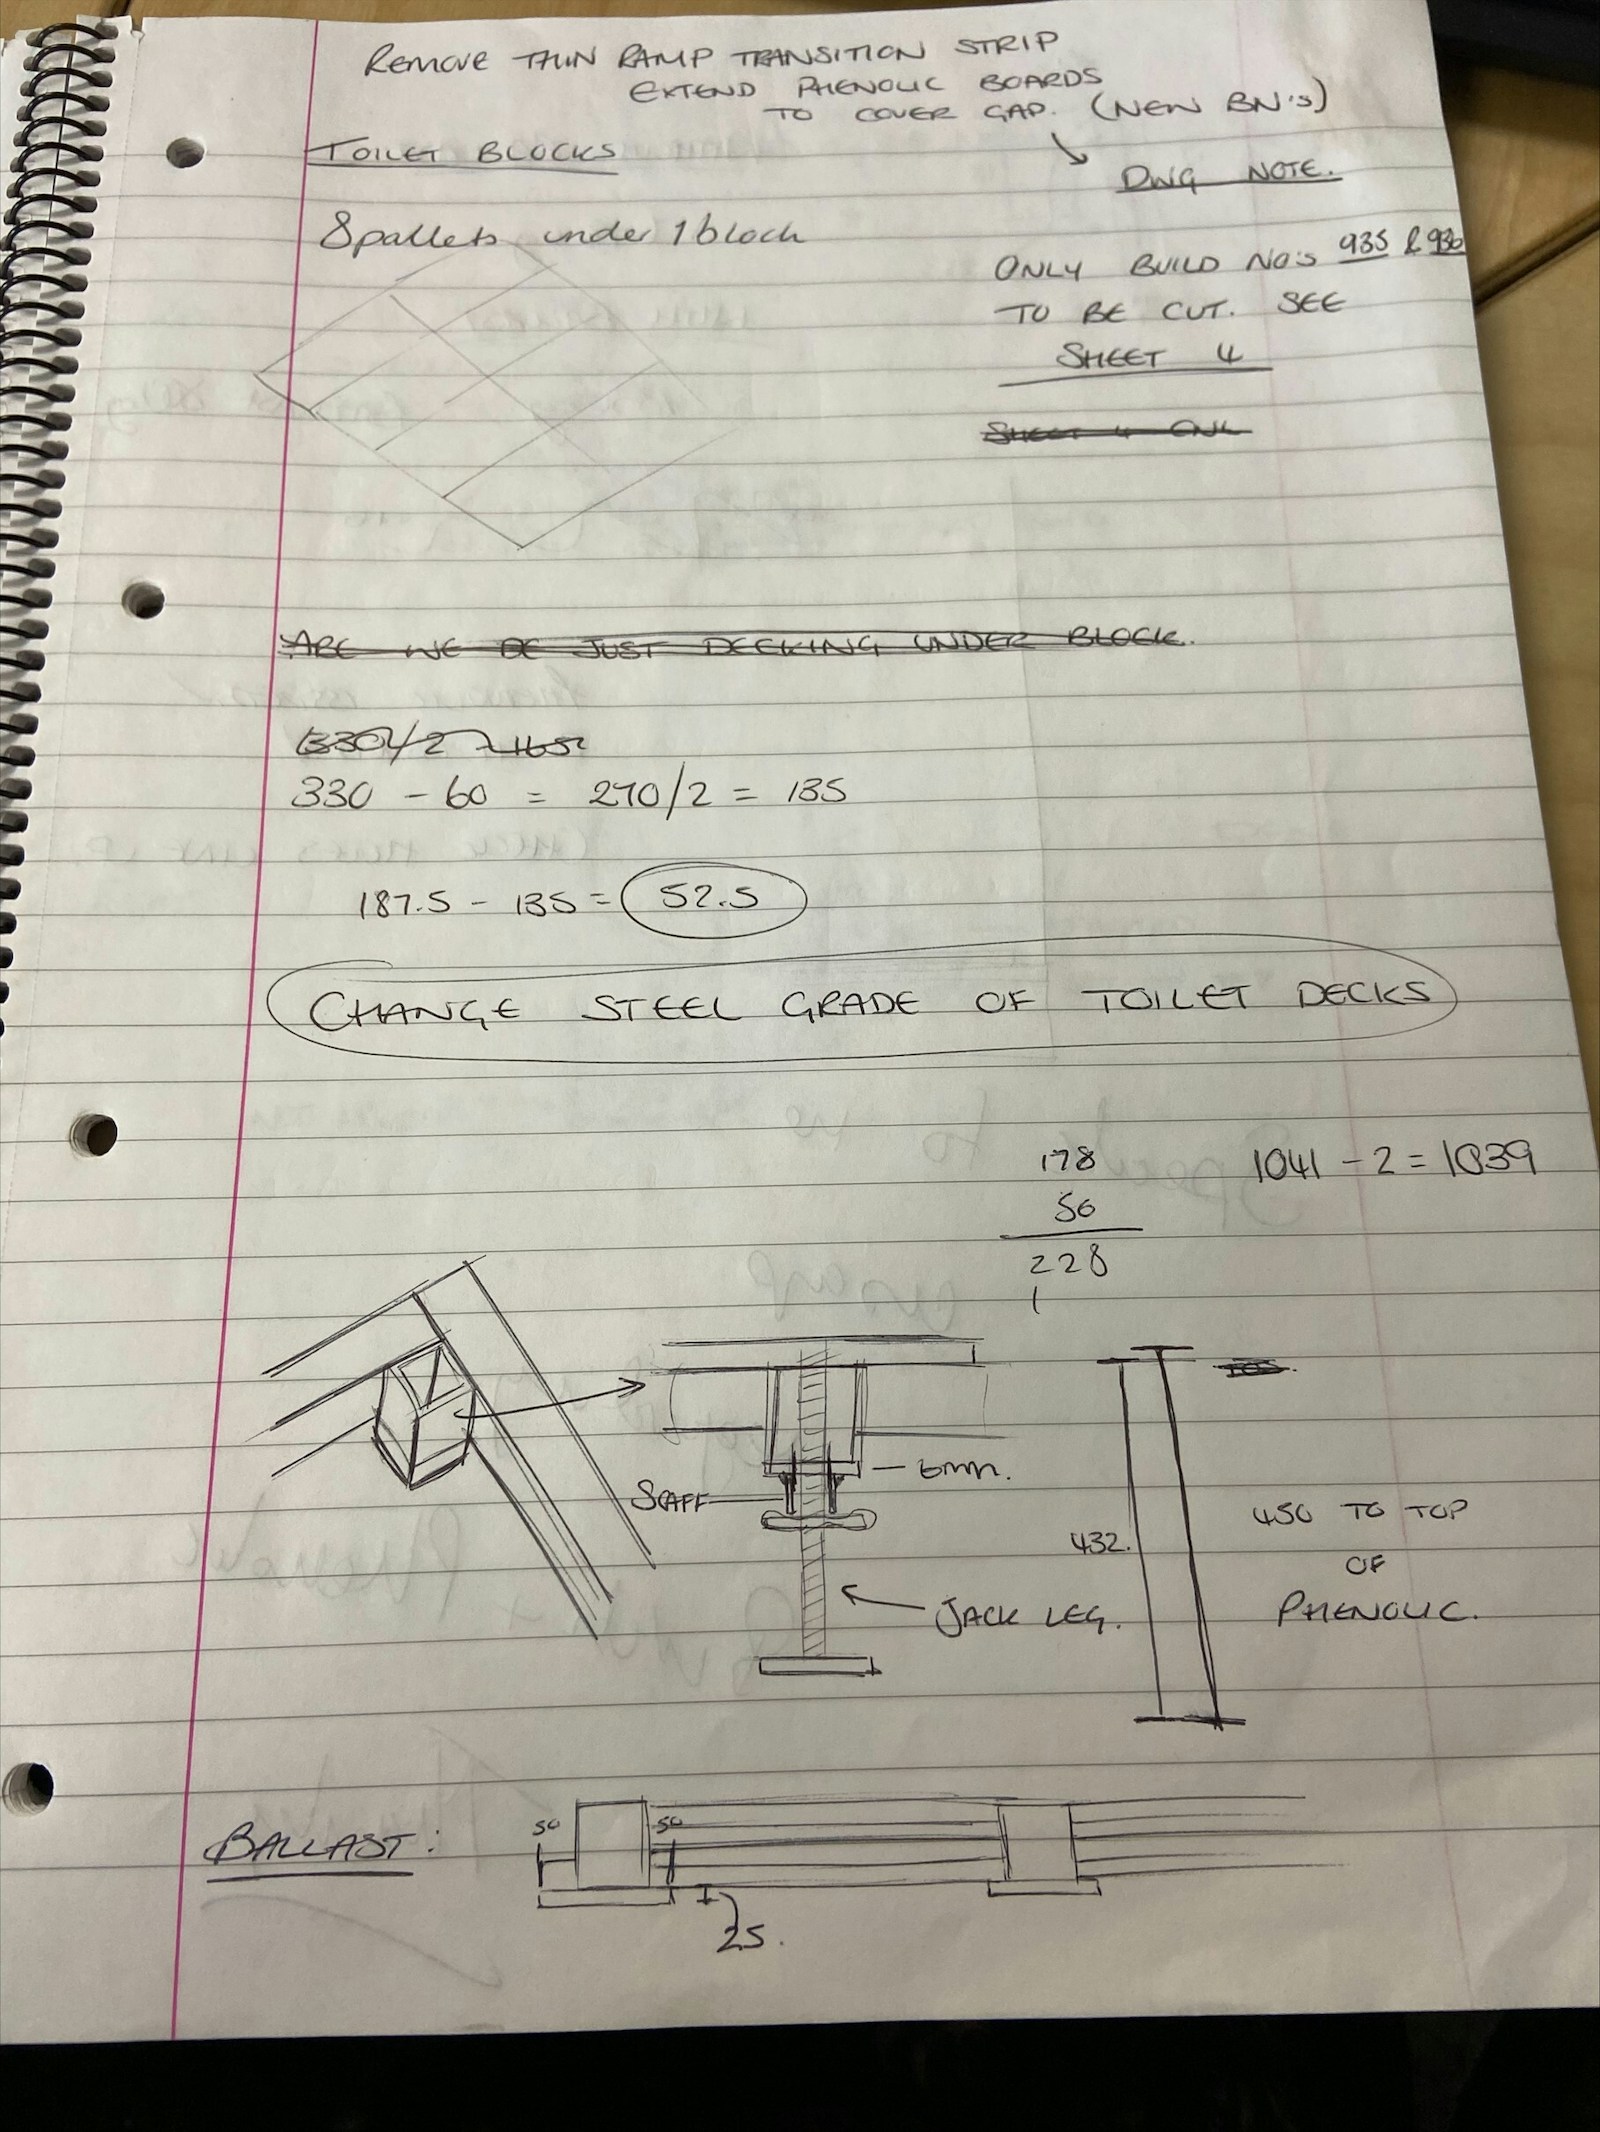 REMOVE THIN RAMP TRANSITION STRIP
EXTEND PHENOLIC BOARDS
TO COVER GAP. (NEW BN'S)
DWG NOTE.
TOILET BLOCKS
8 pallets under 1 block
ONLY BUILD NO'S 935 & 936
TO BE CUT. SEE
SHEET 4
SHEET 4 ONL
ARE WE BE JUST DECKING UNDER BLOCK.
330/2 = 165
330 - 60 = 270/2 = 135
187.5 - 135 = 52.5
CHANGE STEEL GRADE OF TOILET DECKS
178
50
228
1
1041 - 2 = 1039
TOS.
6mm.
SCAFF
432.
450 TO TOP
OF
PHENOLIC.
JACK LEG.
BALLAST:
50
50
25.